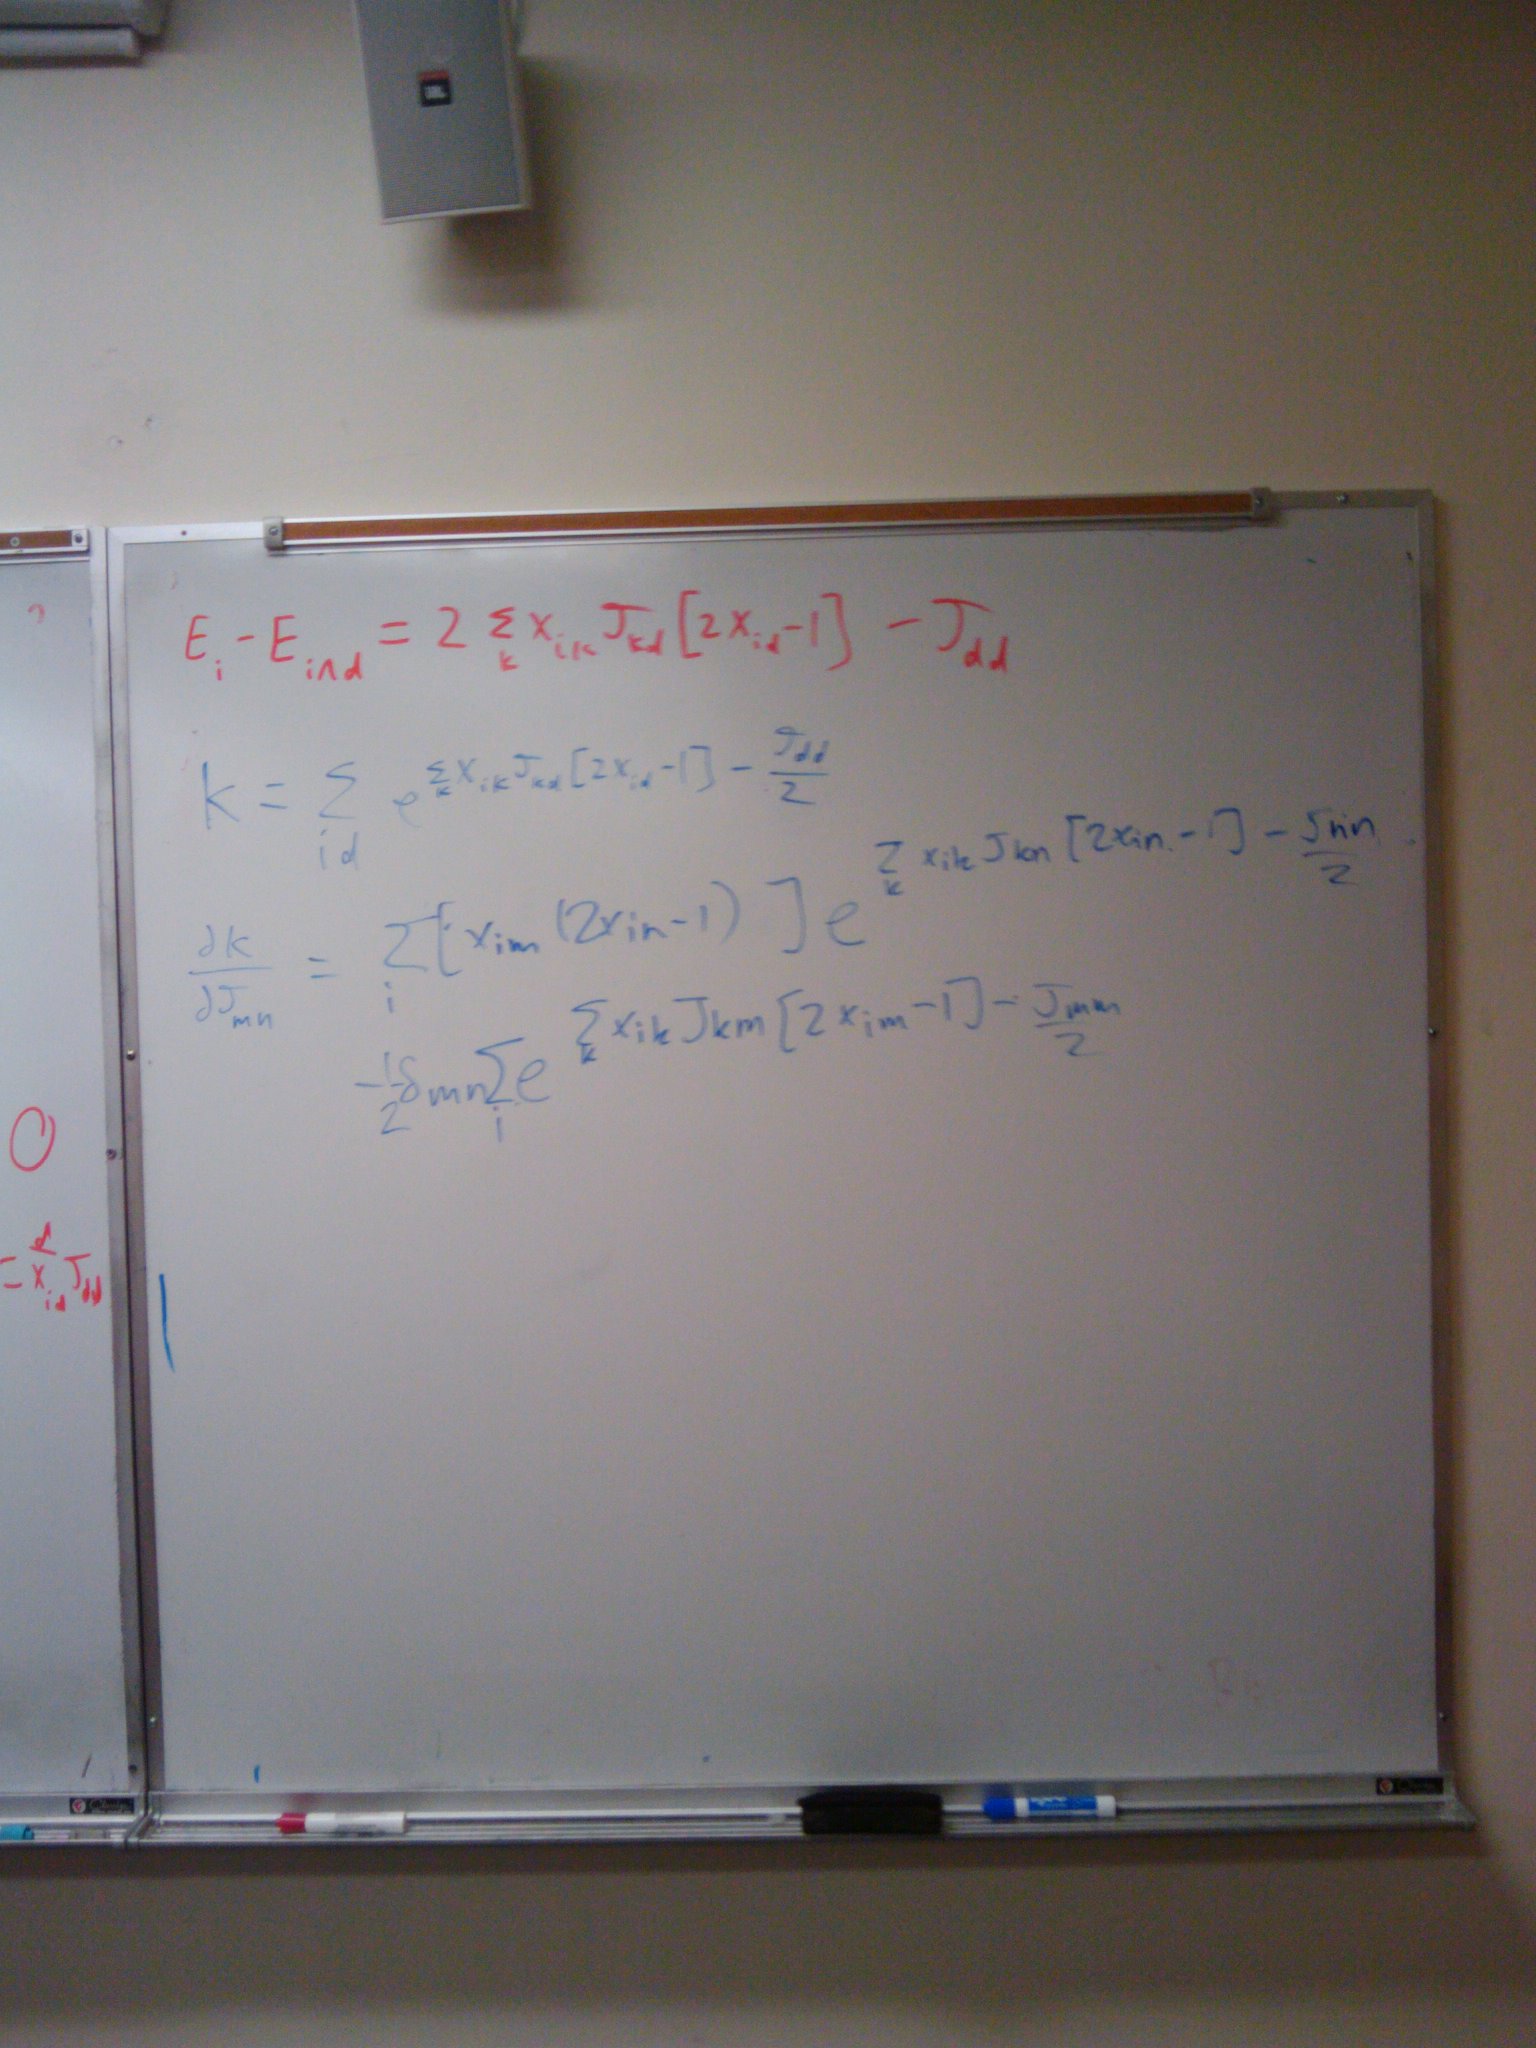 JBL
E_i - E_{i∧d} = 2 Σ_k x_{ik} J_{kd} [2x_{id} - 1] - J_{dd}
K = Σ_{id} e^{Σ_k x_{ik} J_{kd} [2x_{id} - 1] - J_{dd}/2}
∂K/∂J_{mn} = Σ_i [x_{im} (2x_{in} - 1)] e^{Σ_k x_{ik} J_{kn} [2x_{in} - 1] - J_{nn}/2}
-1/2 δ_{mn} Σ_i e^{Σ_k x_{ik} J_{km} [2x_{im} - 1] - J_{mm}/2}
0
= x_{id}^d J_{dd}